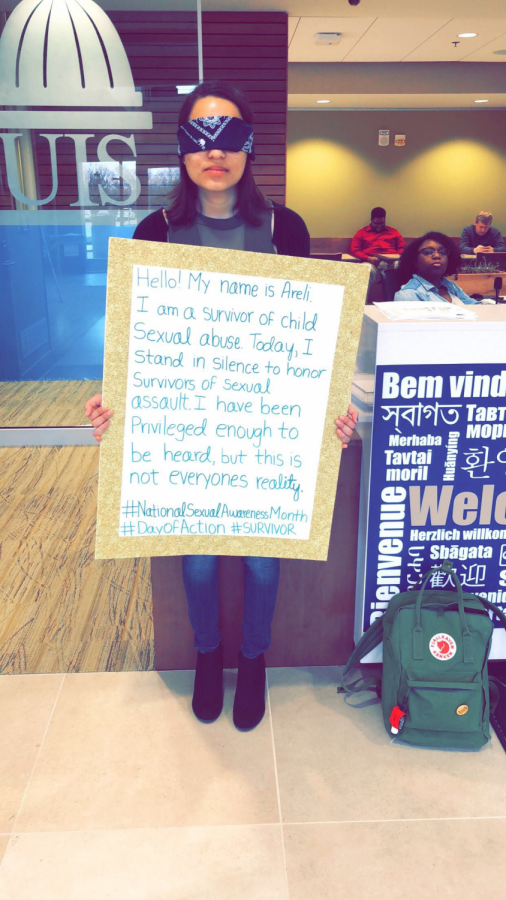 UIS
Hello! My name is Areli.
I am a survivor of child
Sexual abuse. Today, I
Stand in silence to honor
Survivors of sexual
assault. I have been
Privileged enough to
be heard, but this is
not everyones reality.
#NationalSexualAwarenessMonth
#DayOfAction #SURVIVOR
Bem vind
স্বাগত
Merhaba
Tavtai
moril
Huānyíng
환영
Welc
Herzlich willkom
Sbāgata
歡迎
ienvenue